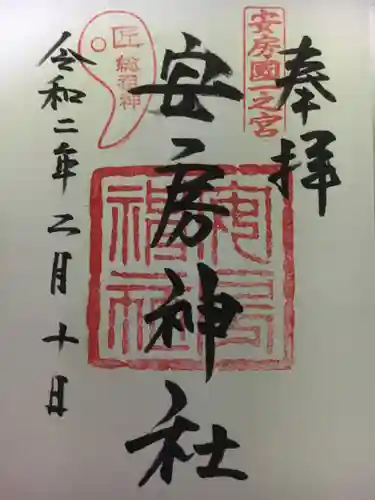 奉拝
安房國一之宮
安房神社
安房神社
匠総祖神
令和二年二月十日